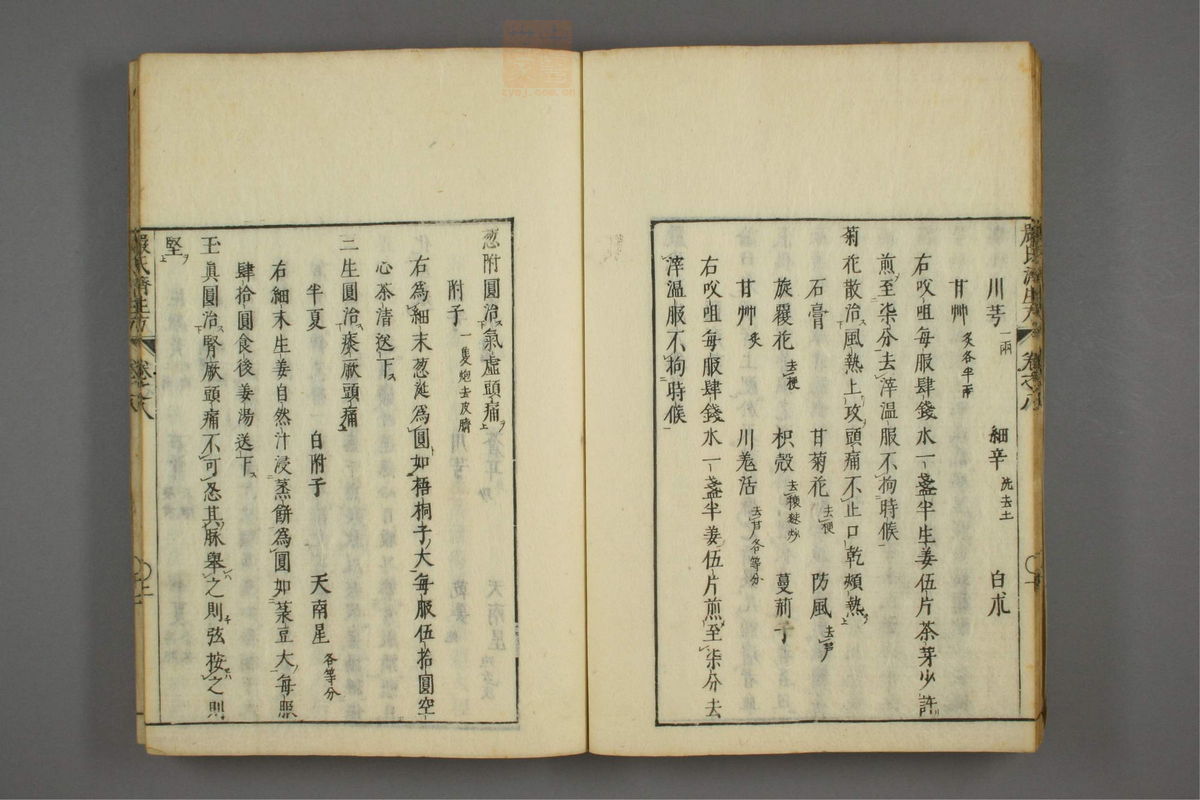 川芎一兩　細辛洗去土　白朮
甘艸炙各半兩
右㕮咀每服肆錢水一盞半生姜伍片茶芽少許
煎至柒分去滓温服不拘時候
菊花散治風熱上攻頭痛不止口乾頰熱
石膏　甘菊花去梗　防風去芦
旋覆花去梗　枳殼去穰麸炒　蔓荊子
甘艸炙　川羗活去芦各等分
右㕮咀每服肆錢水一盞半姜伍片煎至柒分去
滓温服不拘時候
葱附圓治氣虛頭痛
附子一隻炮去皮臍
右爲細末葱涎爲圓如梧桐子大每服伍拾圓空
心茶清送下
三生圓治痰厥頭痛
半夏　白附子　天南星各等分
右細末生姜自然汁浸蒸餅爲圓如菉豆大每服
肆拾圓食後姜湯送下
玉真圓治腎厥頭痛不可忍其脉舉之則弦按之則
堅
嚴氏濟生方　卷之八